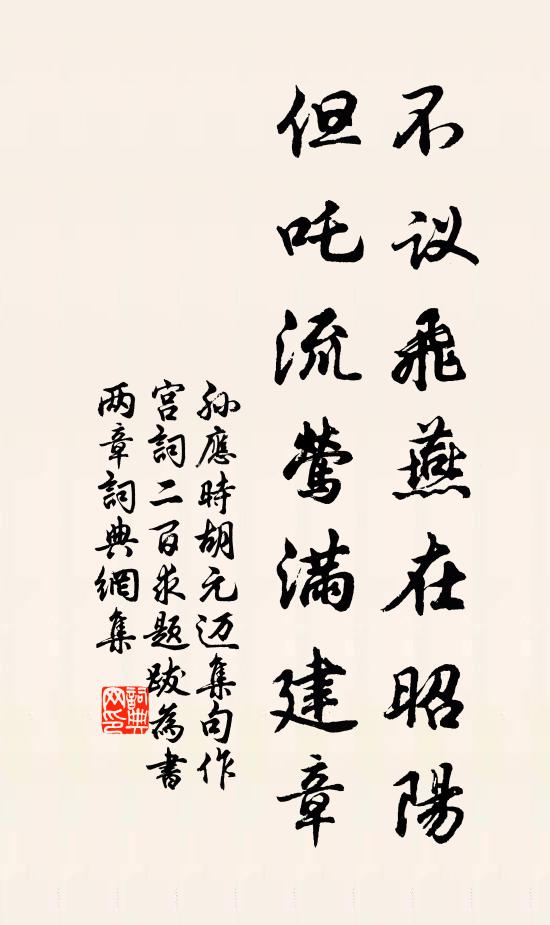 不议飛燕在昭陽
但吒流鶯满建章
孙應時胡元迈集句作
宫詞二百求題跋為書
两章詞典網集
詞典网印